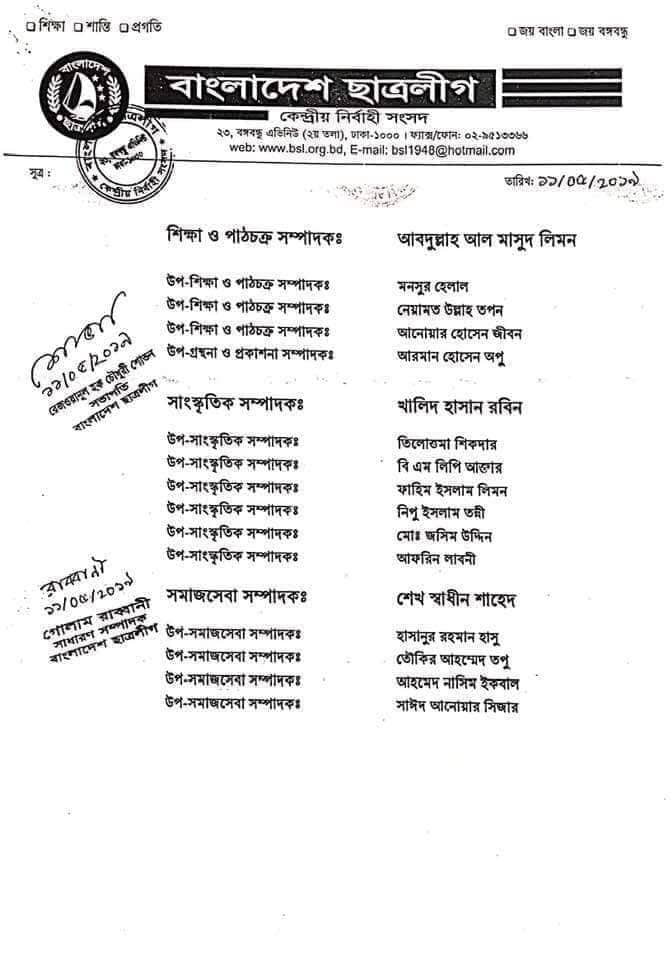 □ শিক্ষা □ শান্তি □ প্রগতি
□ জয় বাংলা □ জয় বঙ্গবন্ধু
বাংলাদেশ
ছাত্রলীগ
বাংলাদেশ ছাত্রলীগ
কেন্দ্রীয় নির্বাহী সংসদ
২৩, বঙ্গবন্ধু এভিনিউ (২য় তলা), ঢাকা-১০০০ । ফ্যাক্স/ফোন: ০২-৯৫১৩৩৬৬
web: www.bsl.org.bd, E-mail: bsl1948@hotmail.com
কেন্দ্রীয় নির্বাহী সংসদ
সূত্র :
তারিখ: ১১/০৫/২০১৯
শিক্ষা ও পাঠচক্র সম্পাদকঃ আবদুল্লাহ আল মাসুদ লিমন
উপ-শিক্ষা ও পাঠচক্র সম্পাদকঃ মনসুর হেলাল
উপ-শিক্ষা ও পাঠচক্র সম্পাদকঃ নেয়ামত উল্লাহ তপন
উপ-শিক্ষা ও পাঠচক্র সম্পাদকঃ আনোয়ার হোসেন জীবন
উপ-গ্রন্থনা ও প্রকাশনা সম্পাদকঃ আরমান হোসেন অপু
১১/০৫/২০১৯
রেজওয়ানুল হক চৌধুরী শোভন
সভাপতি
বাংলাদেশ ছাত্রলীগ
সাংস্কৃতিক সম্পাদকঃ খালিদ হাসান রবিন
উপ-সাংস্কৃতিক সম্পাদকঃ তিলোত্তমা শিকদার
উপ-সাংস্কৃতিক সম্পাদকঃ বি এম লিপি আক্তার
উপ-সাংস্কৃতিক সম্পাদকঃ ফাহিম ইসলাম লিমন
উপ-সাংস্কৃতিক সম্পাদকঃ নিপু ইসলাম তন্নী
উপ-সাংস্কৃতিক সম্পাদকঃ মোঃ জসিম উদ্দিন
উপ-সাংস্কৃতিক সম্পাদকঃ আফরিন লাবনী
রাব্বানী
১১/০৫/২০১৯
গোলাম রাব্বানী
সাধারণ সম্পাদক
বাংলাদেশ ছাত্রলীগ
সমাজসেবা সম্পাদকঃ শেখ স্বাধীন শাহেদ
উপ-সমাজসেবা সম্পাদকঃ হাসানুর রহমান হাসু
উপ-সমাজসেবা সম্পাদকঃ তৌকির আহম্মেদ তপু
উপ-সমাজসেবা সম্পাদকঃ আহমেদ নাসিম ইকবাল
উপ-সমাজসেবা সম্পাদকঃ সাঈদ আনোয়ার সিজার